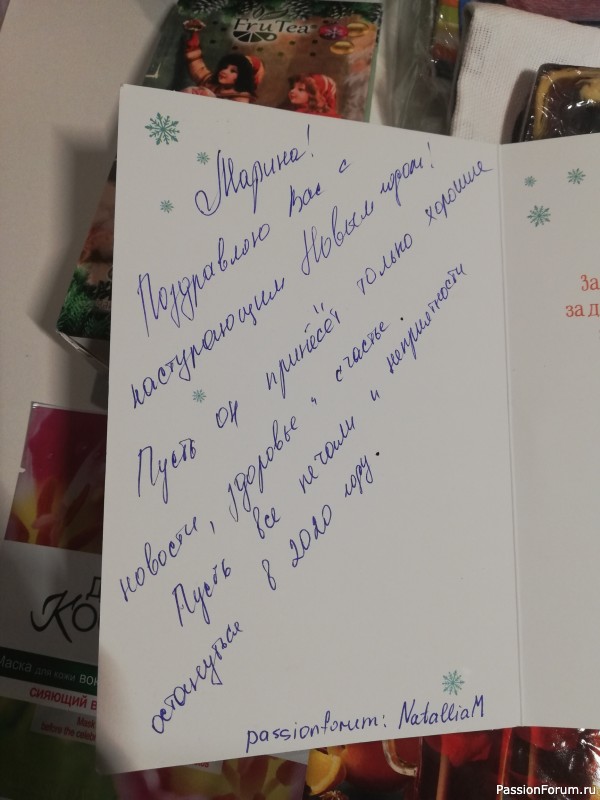 FruTea
Марина!
Поздравляю Вас с
наступающим Новым годом!
Пусть он принесёт только хорошие
новости, здоровье и счастье.
Пусть все печали и неприятности
останутся в 2020 году.
passionforum: NatalliaM
За
за д
Д
Ко
Маска для кожи вок
СИЯЮЩИЙ В
Mask
before the celeb
PassionForum.ru